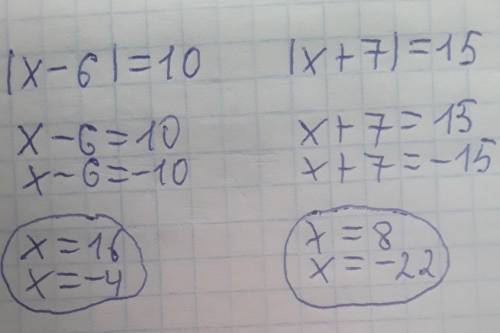 |x-6|=10
x-6=10
x-6=-10
x=16
x=-4
|x+7|=15
x+7=15
x+7=-15
x=8
x=-22